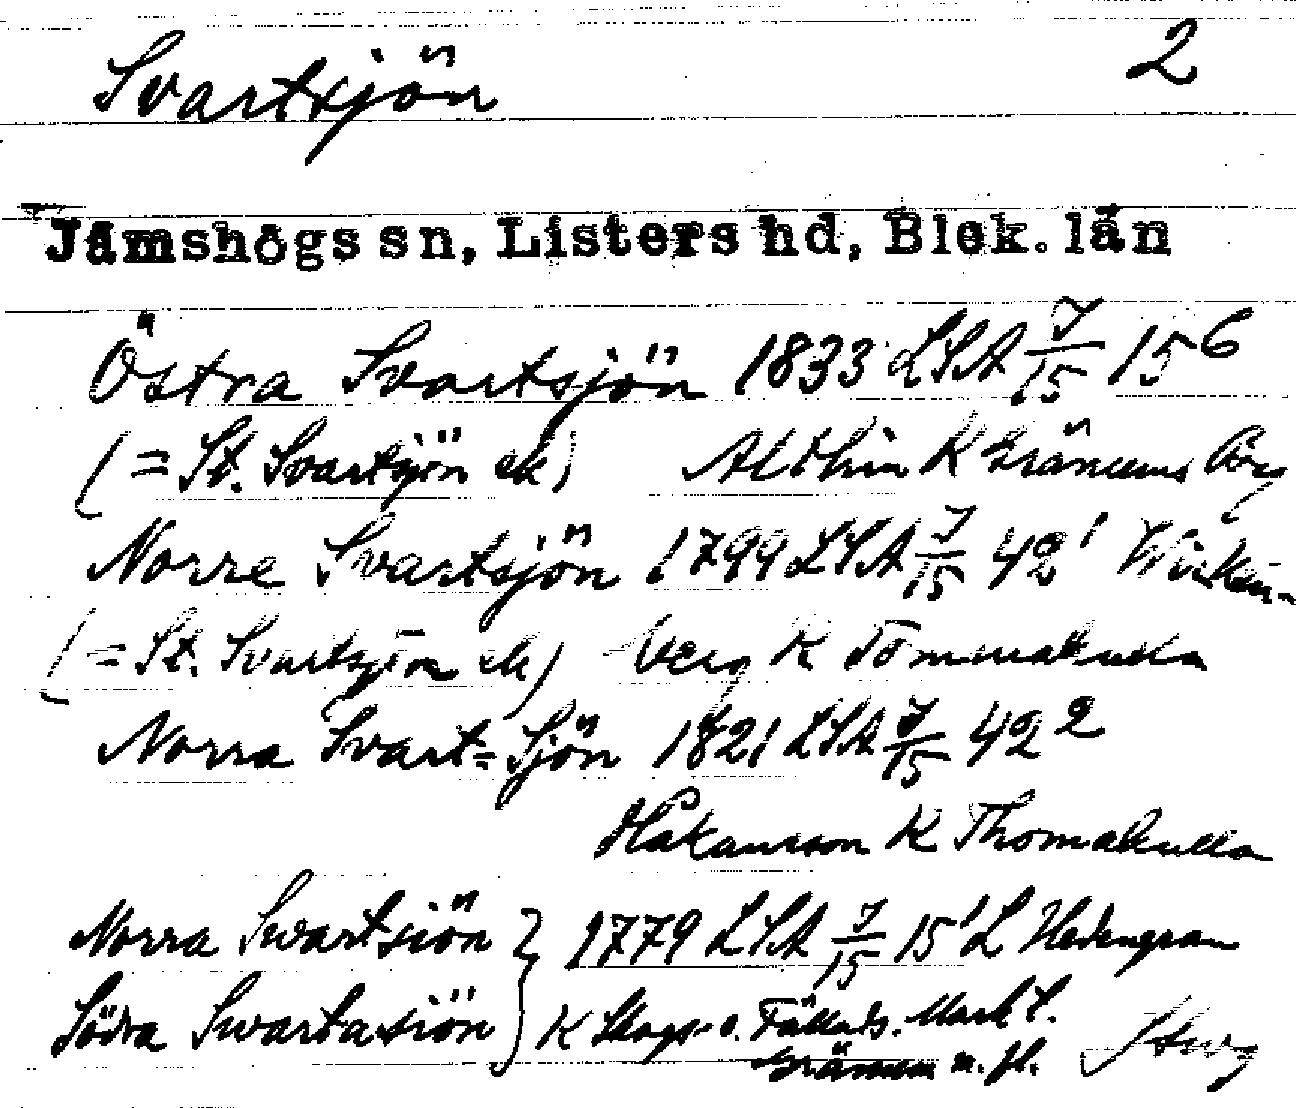 Svartsjön 2
Jämshögs sn, Listers hd, Blek. län
Östra Svartsjön 1833 LSA 7/15 15⁶
(= St. Svartsjön ek) Althin K Gränums
Norre Svartsjön 1799 LSA 7/15 42¹
(= St. Svartsjön ek) K Tommakulla
Norra Svart=Sjön 1821 LSA 7/15 42²
Håkansson K Thomakulla
Norra Swartsiön } 1779 LSA 7/15 15¹ L Hedengran
Södra Swartasiön } K Skogs- o. Fällads. Mark t.
Gränum m. fl.